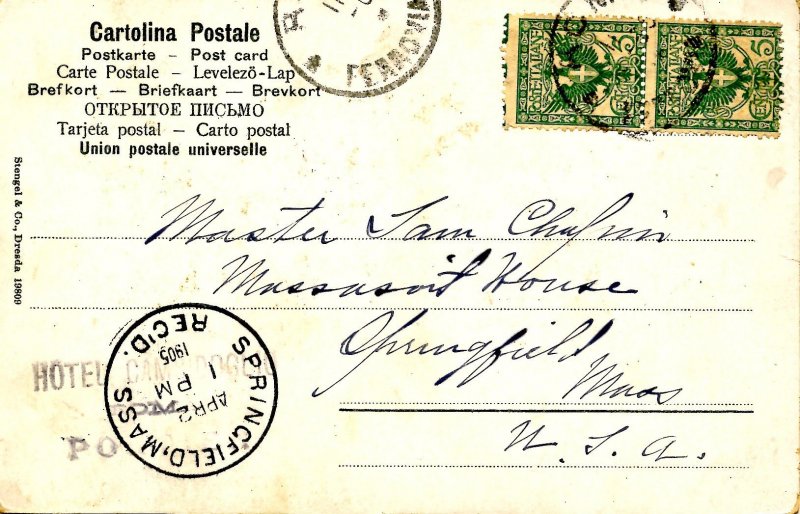 Cartolina Postale
Postkarte – Post card
Carte Postale – Levelezö-Lap
Brefkort — Briefkaart — Brevkort
ОТКРЫТОЕ ПИСЬМО
Tarjeta postal – Carto postal
Union postale universelle
FERROVIA
POSTE ITALIANE
CENT 5
POSTE ITALIANE
CENT 5
Stengel & Co., Dresda 19809
Master Sam Chapin
Massasoit House
Springfield
Mass
U. S. A.
HOTEL
ROMA
PO
SPRINGFIELD, MASS.
REC'D.
1905
1 PM
APR 2